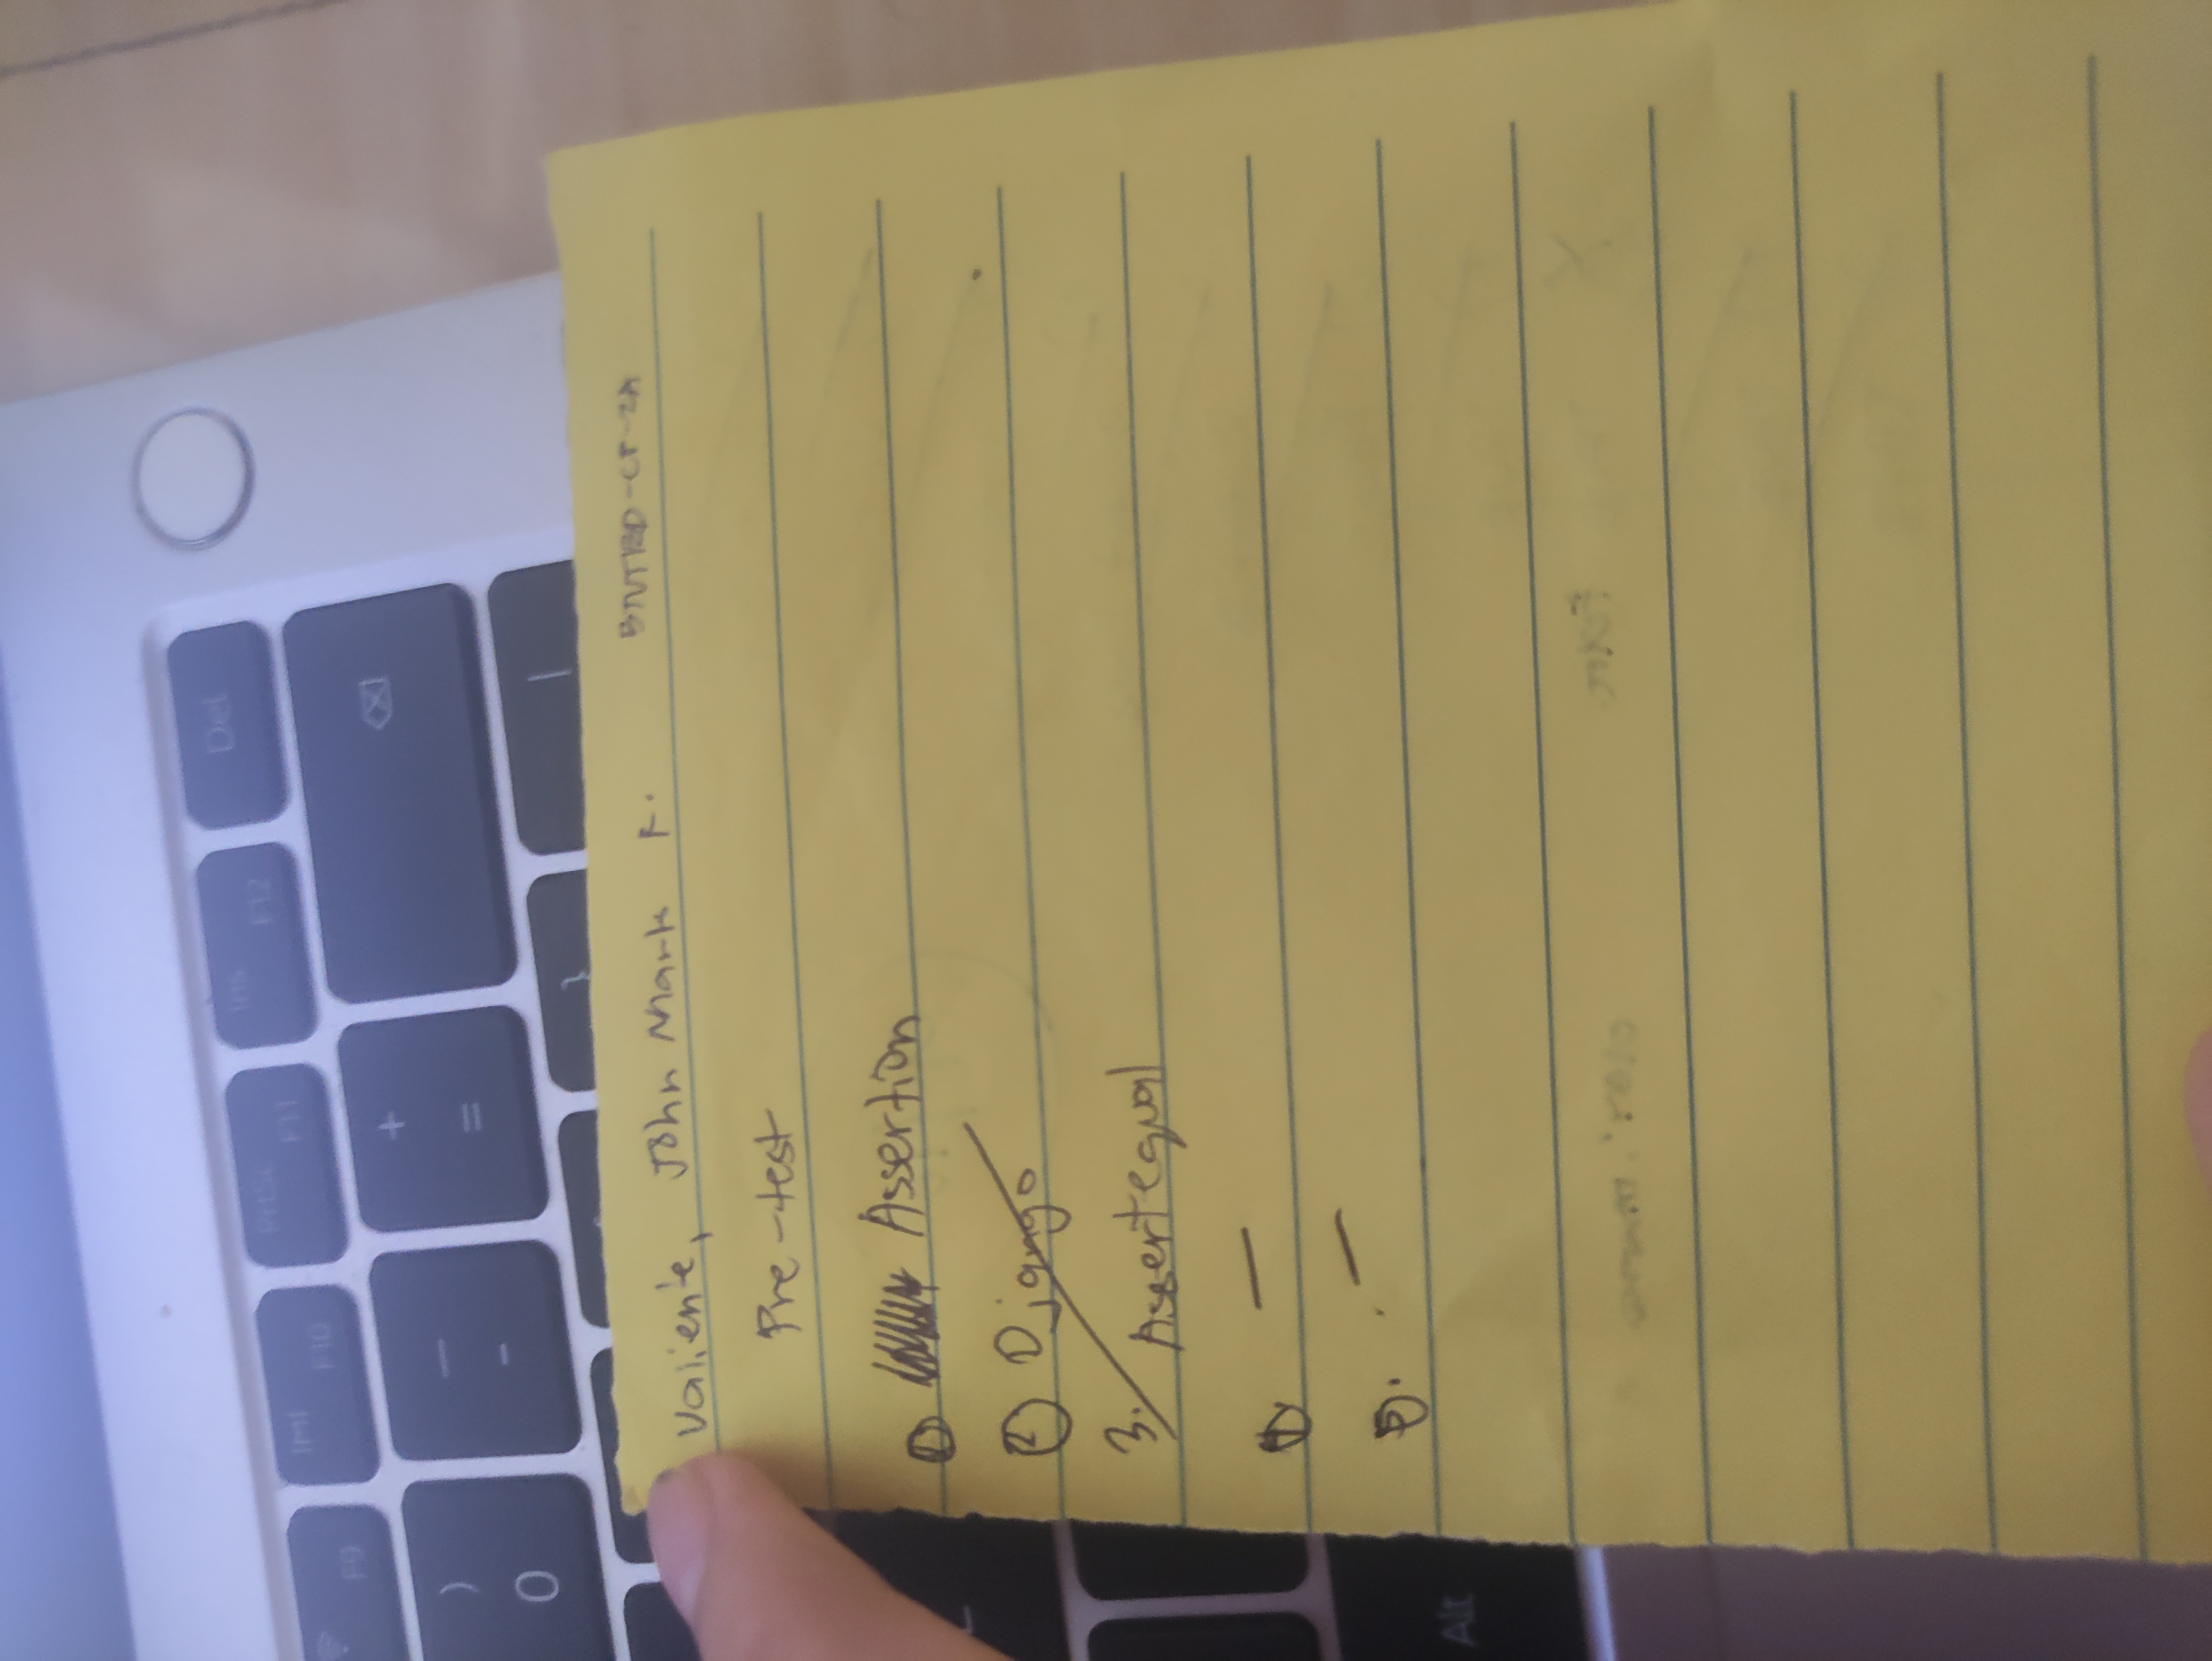 F9
IMI F10
PrtSc F11
Ins F12
Del
)
0
—
-
+
=
}
|
Alt
Valiente, John Mark F.
Pre-test
1 Assertion
2 Django
3. Assertequal
4 —
5. —